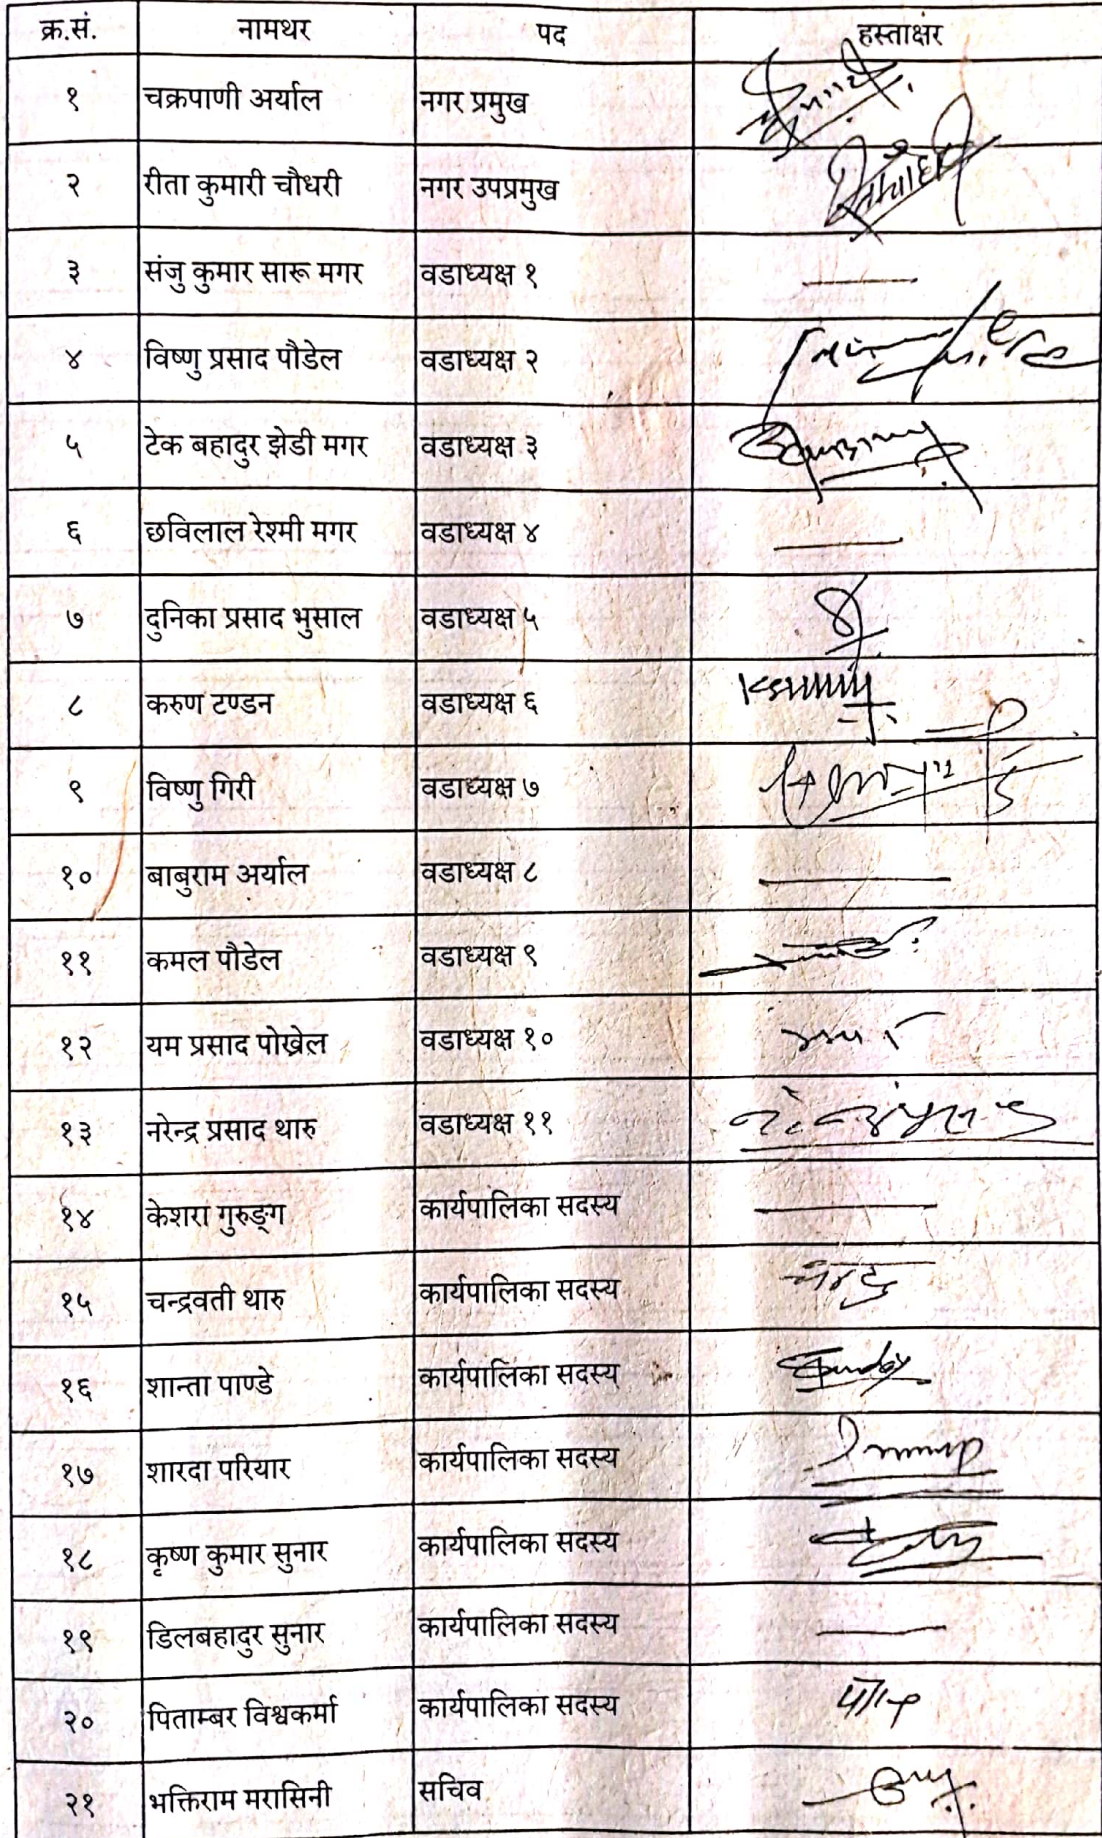 क्र.सं. नामथर पद हस्ताक्षर
१ चक्रपाणी अर्याल नगर प्रमुख
२ रीता कुमारी चौधरी नगर उपप्रमुख
३ संजु कुमार सारू मगर वडाध्यक्ष १
४ विष्णु प्रसाद पौडेल वडाध्यक्ष २
५ टेक बहादुर झेडी मगर वडाध्यक्ष ३
६ छविलाल रेश्मी मगर वडाध्यक्ष ४
७ दुनिका प्रसाद भुसाल वडाध्यक्ष ५
८ करुण टण्डन वडाध्यक्ष ६
९ विष्णु गिरी वडाध्यक्ष ७
१० बाबुराम अर्याल वडाध्यक्ष ८
११ कमल पौडेल वडाध्यक्ष ९
१२ यम प्रसाद पोख्रेल वडाध्यक्ष १०
१३ नरेन्द्र प्रसाद थारु वडाध्यक्ष ११
१४ केशरा गुरुङ्ग कार्यपालिका सदस्य
१५ चन्द्रवती थारु कार्यपालिका सदस्य
१६ शान्ता पाण्डे कार्यपालिका सदस्य
१७ शारदा परियार कार्यपालिका सदस्य
१८ कृष्ण कुमार सुनार कार्यपालिका सदस्य
१९ डिलबहादुर सुनार कार्यपालिका सदस्य
२० पिताम्बर विश्वकर्मा कार्यपालिका सदस्य
२१ भक्तिराम मरासिनी सचिव